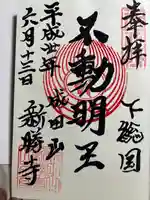 奉拝
下総国
不動明王
成田山
新勝寺
平成廿年
六月十三日